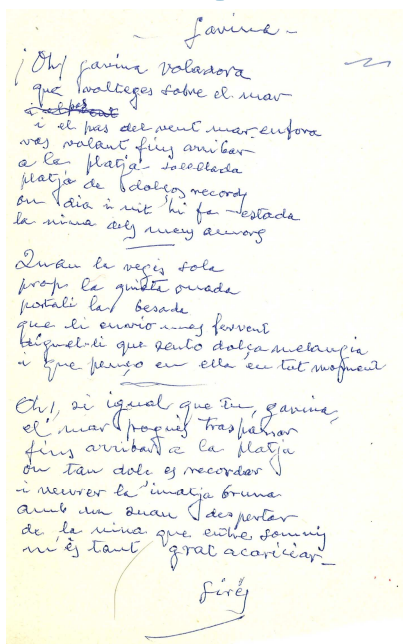 - Gavina -
¡Oh! gavina voladora
que volteges sobre el mar
i el pas del vent mar enfora
vas volant fins arribar
a la platja solellada
platja de dolços records
on dia i nit hi fa estada
la nina dels meus amors
Quan la vegis sola
prop la quieta onada
portali la besada
que li envio mes fervent
digueli que sento dolça melangia
i que penso en ella en tot moment
Oh!, si igual que tu, gavina,
el mar pogués traspassar
fins arribar a la platja
on tan dolç es recordar
i veurer la imatja bruna
amb un suau despertar
de la nina que entre somnis
m'és tant grat acariciar_
Sirés